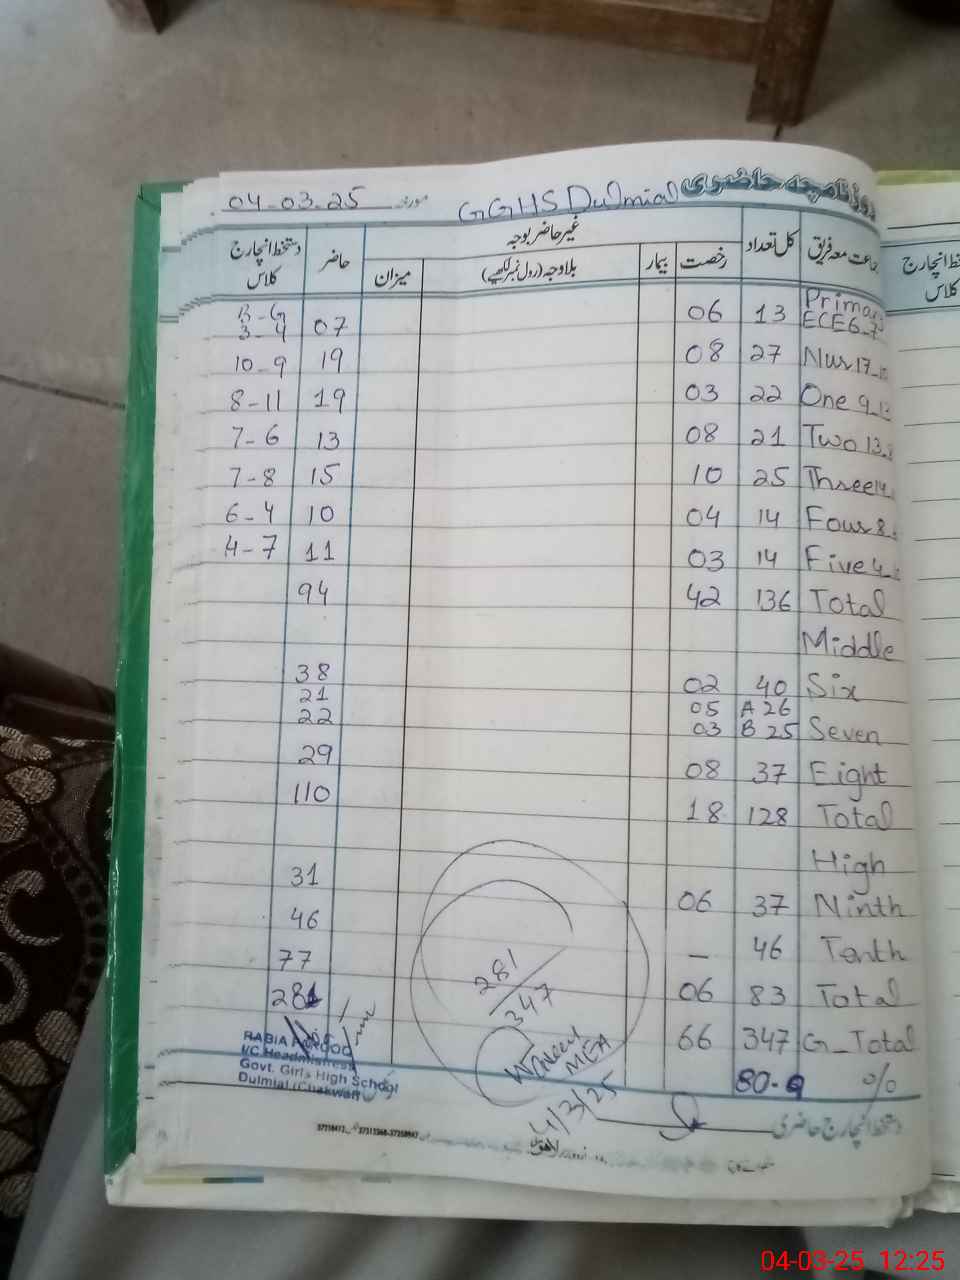 روزنامچہ حاضری GGHS Dulmial مورخہ 04-03-25
جماعت معہ فریق کل تعداد غیر حاضر بوجہ حاضر دستخط انچارج کلاس
رخصت بیمار بلاوجہ (رول نمبر لکھیے) میزان
Primary
ECE 6-7 13 06 07 B-G 3-4
Nur 17 27 08 19 10-9
One 9 22 03 19 8-11
Two 13-8 21 08 13 7-6
Three 14 25 10 15 7-8
Four 8 14 04 10 6-4
Five 4 14 03 11 4-7
Total 136 42 94
Middle
Six 40 02 38
A 26 05 21
Seven B 25 03 22
Eight 37 08 29
Total 128 18 110
High
Ninth 37 06 31
Tenth 46 — 46
Total 83 06 77
G-Total 347 66 281
% 80-9
281/347
MEA
4/3/25
RABIA
I/C Headmistress
Govt. Girls High School
Dulmial (Chakwal)
دستخط انچارج حاضری
خط انچارج
کلاس
لاہور
04-03-25 12:25